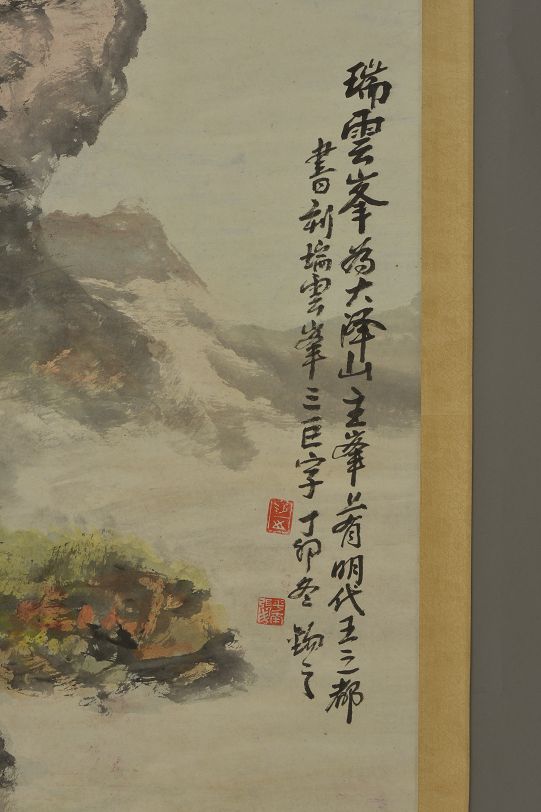 瑞雲峯為大泽山主峯上有明代王之都
書刻瑞雲峯三巨字丁卯冬錫之